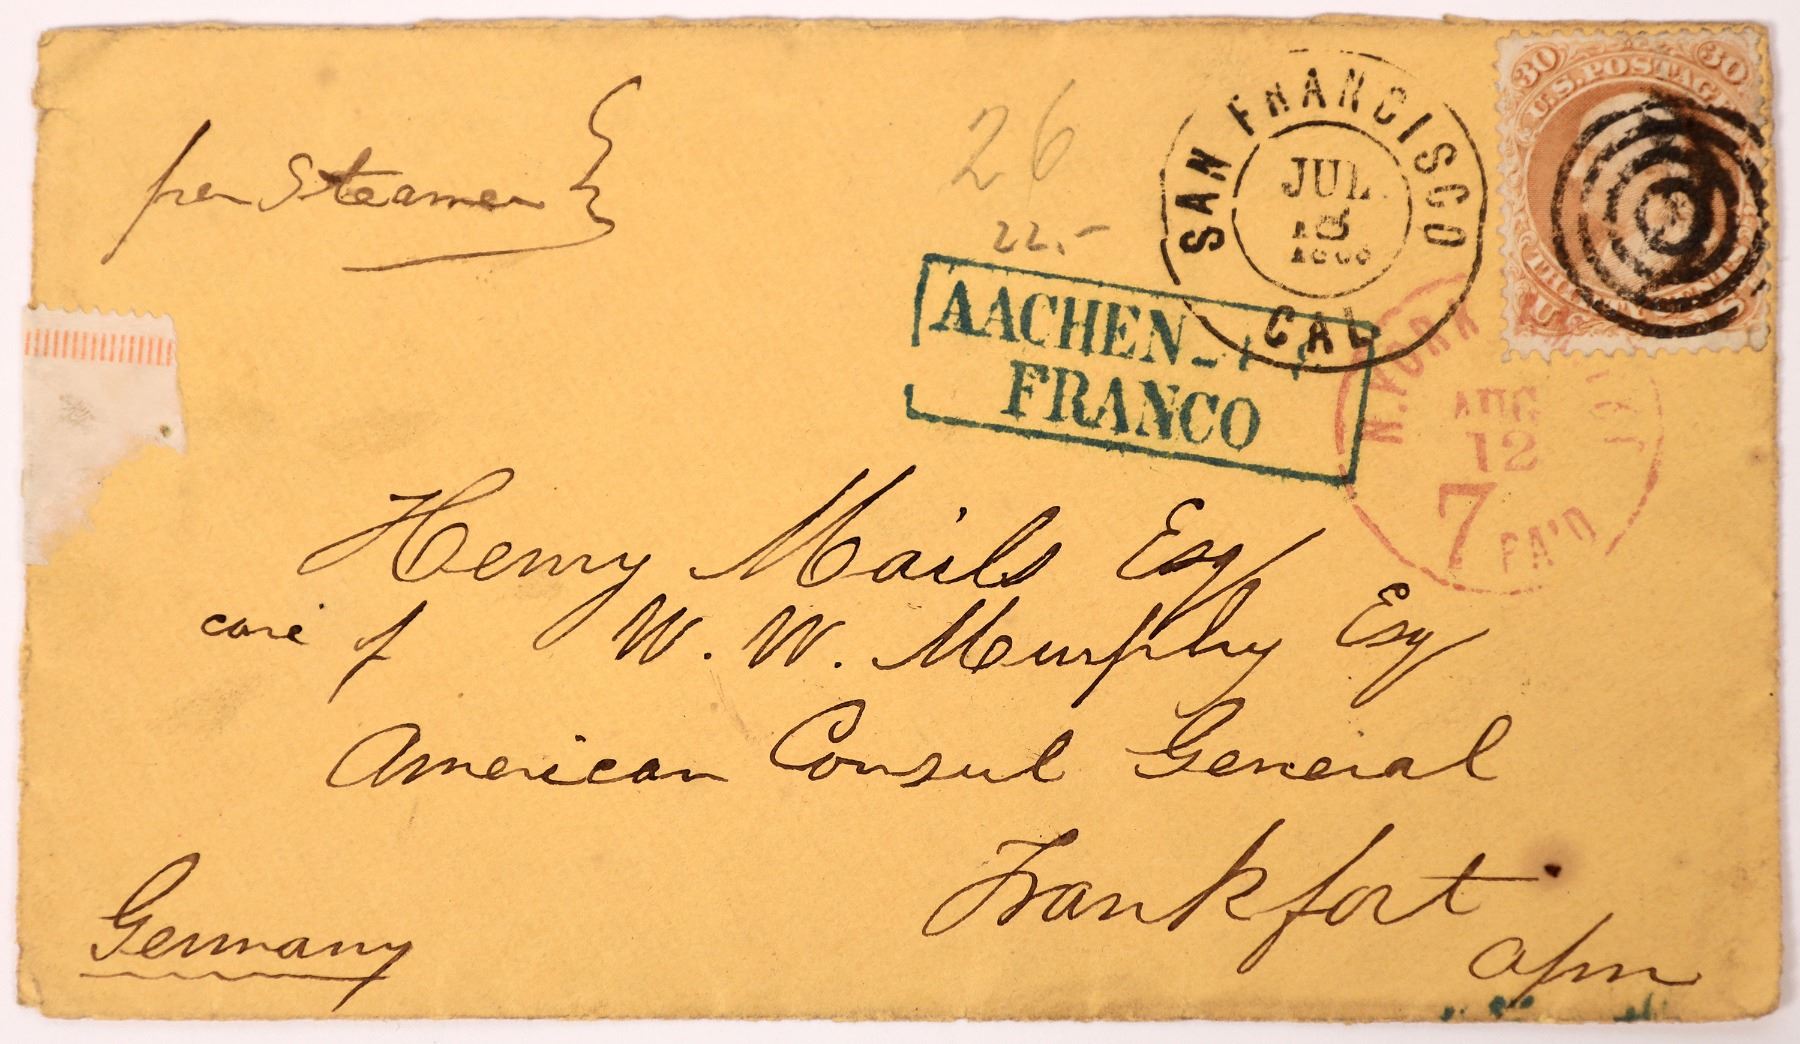 per Steamer
26
22.-
SAN FRANCISCO
JUL
CAL
30 30
U.S. POSTAGE
U S
AACHEN
FRANCO
N. YORK
AUG
12
7 PA'D
Henry Mails Esq
care of W. W. Murphy Esq
American Consul General
Frankfort
a/m
Germany